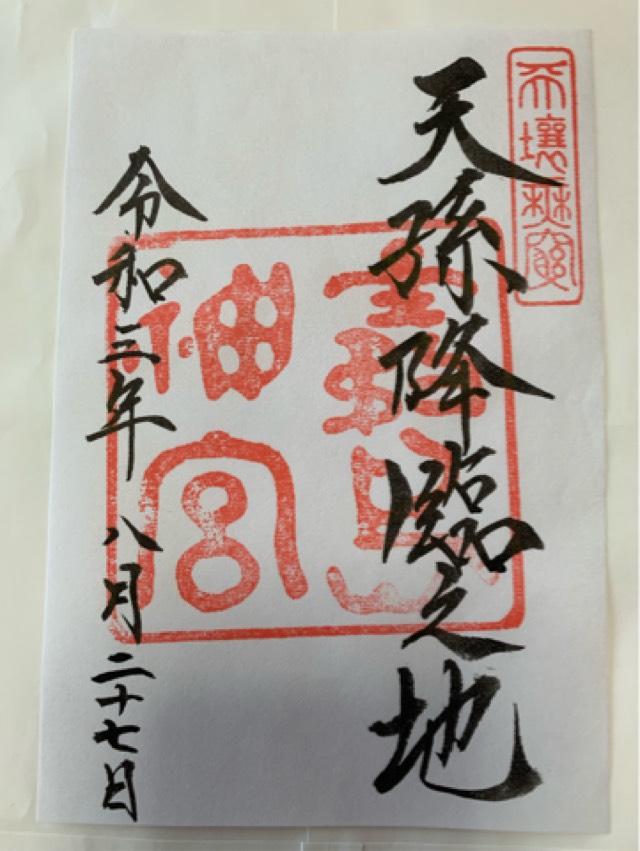 天壤無窮
天孫降臨之地
霧島
神宮
令和三年八月二十七日